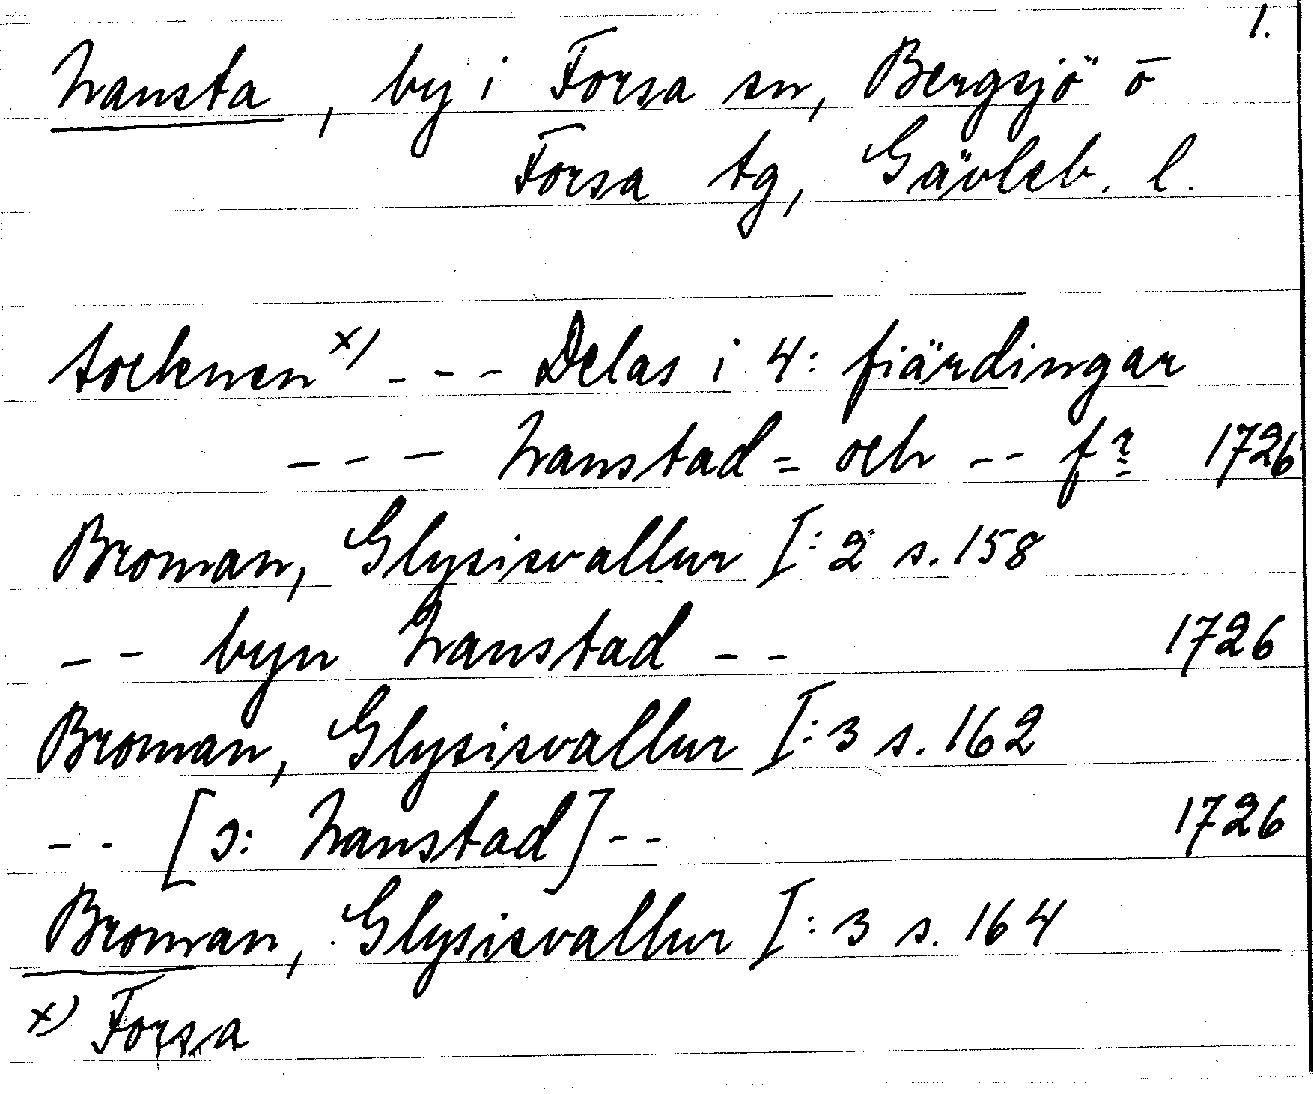 1.
Nansta, by i Forsa sn, Bergsjö o
Forsa tg, Gävleb. l.
Socknen x) - - - Delas i 4: fiärdingar
- - - Nanstad = och - - fr 1726
Broman, Glysisvallur I:2 s. 158
- - byn Nanstad - - 1726
Broman, Glysisvallur I:3 s. 162
- - [ɔ: Nanstad] - - 1726
Broman, Glysisvallur I:3 s. 164
x) Forsa